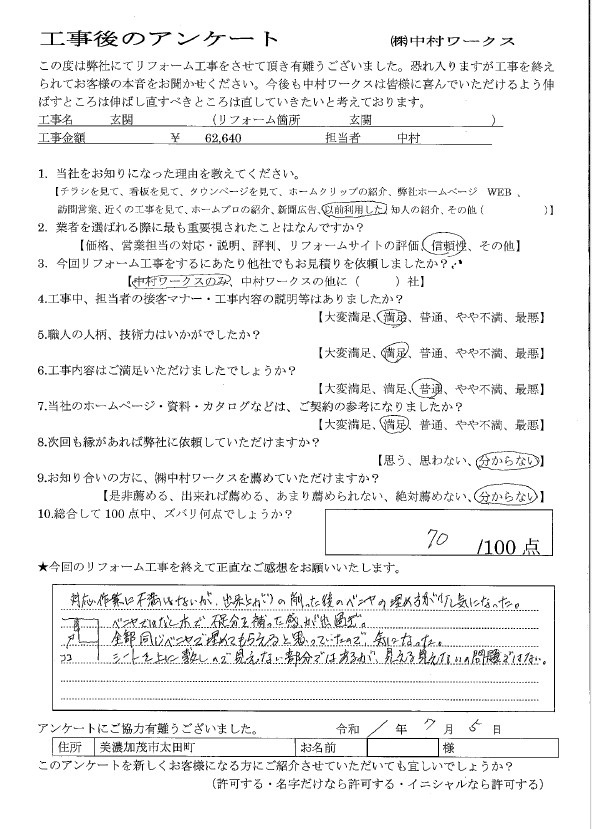 工事後のアンケート　㈱中村ワークス
この度は弊社にてリフォーム工事をさせて頂き有難うございました。恐れ入りますが工事を終え
られてお客様の本音をお聞かせください。今後も中村ワークスは皆様に喜んでいただけるよう伸
ばすところは伸ばし直すべきところは直していきたいと考えております。
工事名　玄関　（リフォーム箇所　玄関　）
工事金額　￥　62,640　担当者　中村
1. 当社をお知りになった理由を教えてください。
【チラシを見て、看板を見て、タウンページを見て、ホームクリップの紹介、弊社ホームページ　WEB 、
訪問営業、近くの工事を見て、ホームプロの紹介、新聞広告、以前利用した、知人の紹介、その他（　）】
2. 業者を選ばれる際に最も重要視されたことはなんですか？
【価格、営業担当の対応・説明、評判、リフォームサイトの評価、信頼性、その他】
3. 今回リフォーム工事をするにあたり他社でもお見積りを依頼しましたか？
【中村ワークスのみ、中村ワークスの他に（　）社】
4.工事中、担当者の接客マナー・工事内容の説明等はありましたか？
【大変満足、満足、普通、やや不満、最悪】
5.職人の人柄、技術力はいかがでしたか？
【大変満足、満足、普通、やや不満、最悪】
6.工事内容はご満足いただけましたでしょうか？
【大変満足、満足、普通、やや不満、最悪】
7.当社のホームページ・資料・カタログなどは、ご契約の参考になりましたか？
【大変満足、満足、普通、やや不満、最悪】
8.次回も縁があれば弊社に依頼していただけますか？
【思う、思わない、分からない】
9.お知り合いの方に、㈱中村ワークスを薦めていただけますか？
【是非薦める、出来れば薦める、あまり薦められない、絶対薦めない、分からない】
10.総合して 100 点中、ズバリ何点でしょうか？
70　/100 点
★今回のリフォーム工事を終えて正直なご感想をお願いいたします。
対応、作業に不満はないが、出来上がりの削った後のベニヤの埋め方が少し気になった。
ベニヤではなく木で 不足分を補った感が出ている。
全部同じベニヤで埋めてもらえると思っていたので、気になった。
ココ シートを上に敷くので見えない部分ではあるが、見える見えないの問題ではない。
アンケートにご協力有難うございました。　令和 1 年 7 月 5 日
住所　美濃加茂市太田町　お名前　様
このアンケートを新しくお客様になる方にご紹介させていただいても宜しいでしょうか？
（許可する・名字だけなら許可する・イニシャルなら許可する）